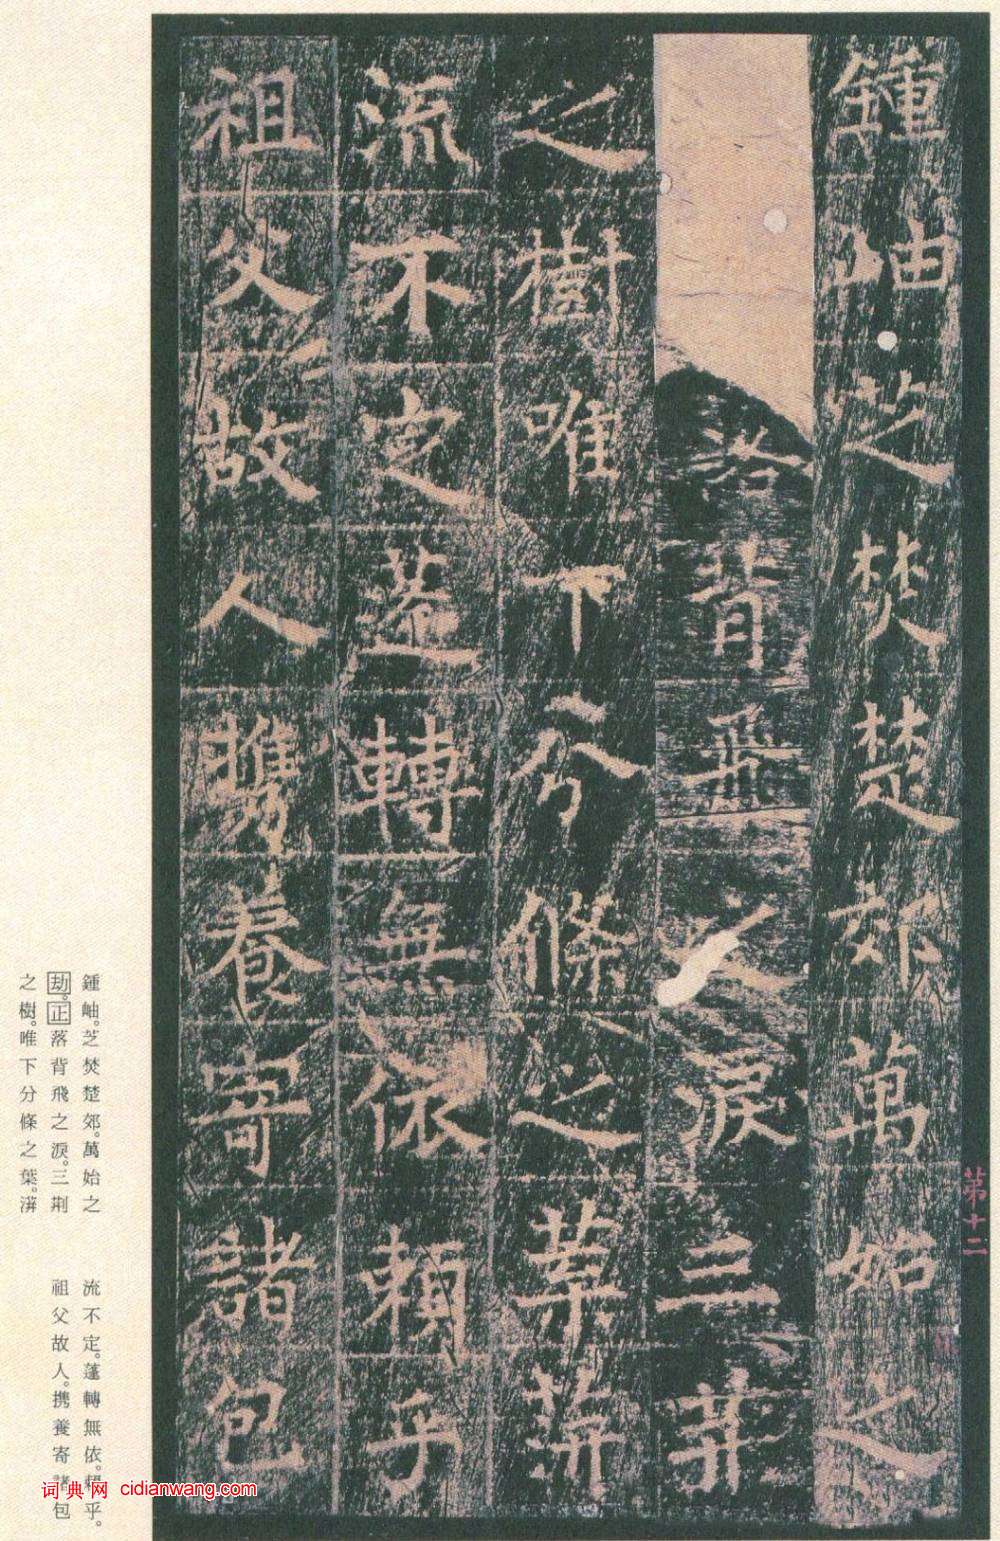 鍾岫芝焚楚郊萬始之
落背飛之淚三荆
之樹唯下分條之葉蓱
流不定蓬轉無依賴乎
祖父故人攜養寄諸包
第十二
鍾岫。芝焚楚郊。萬始之
劫。正落背飛之淚。三荆
之樹。唯下分條之葉。蓱
流不定。蓬轉無依。賴乎。
祖父故人。携養寄諸包
词典网 cidianwang.com